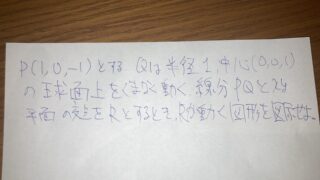 P(1,0,-1)とする Qは半径1,中心(0,0,1)
の球面上をくまなく動く 線分PQとxy
平面の交点をRとするとき,Rが動く図形を図示せよ。